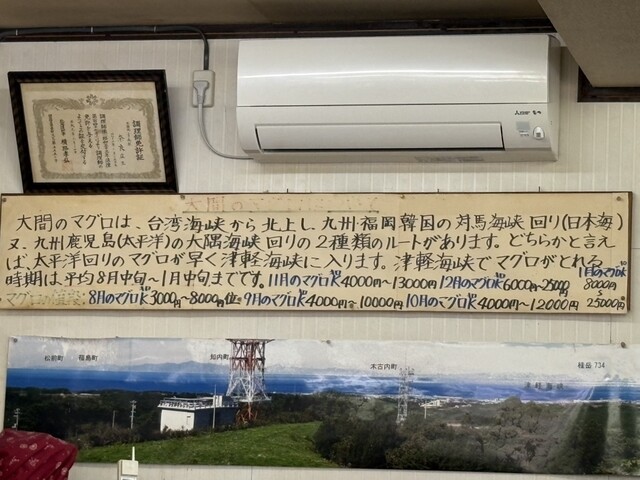 調理師免許証
MITSUBISHI
大間のマグロは、台湾海峡から北上し、九州・福岡韓国の対馬海峡回り(日本海)
又、九州鹿児島(太平洋)の大隅海峡回りの2種類のルートがあります。どちらかと言え
ば、太平洋回りのマグロが早く津軽海峡に入ります。津軽海峡でマグロがとれる
時期は、平均8月中旬〜1月中旬までです。11月のマグロK 4000円〜13000円 12月のマグロK 6000円〜25000円 1月のマグロK 8000円〜25000円
8月のマグロK 3000円〜8000円位 9月のマグロK 4000円〜10000円 10月のマグロK 4000円〜12000円
松前町 福島町 知内町 木古内町 桂岳 734
津軽海峡